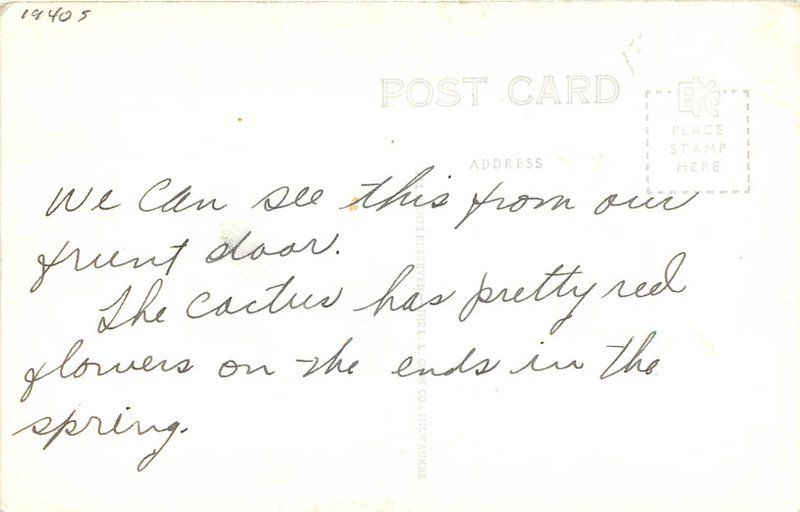 1940s
POST CARD
EKC
PLACE
STAMP
HERE
ADDRESS
We can see this from our
frunt door.
The cactus has pretty red
flowers on the ends in the
spring.
RESERVED THE L. L. COOK CO., MILWAUKEE